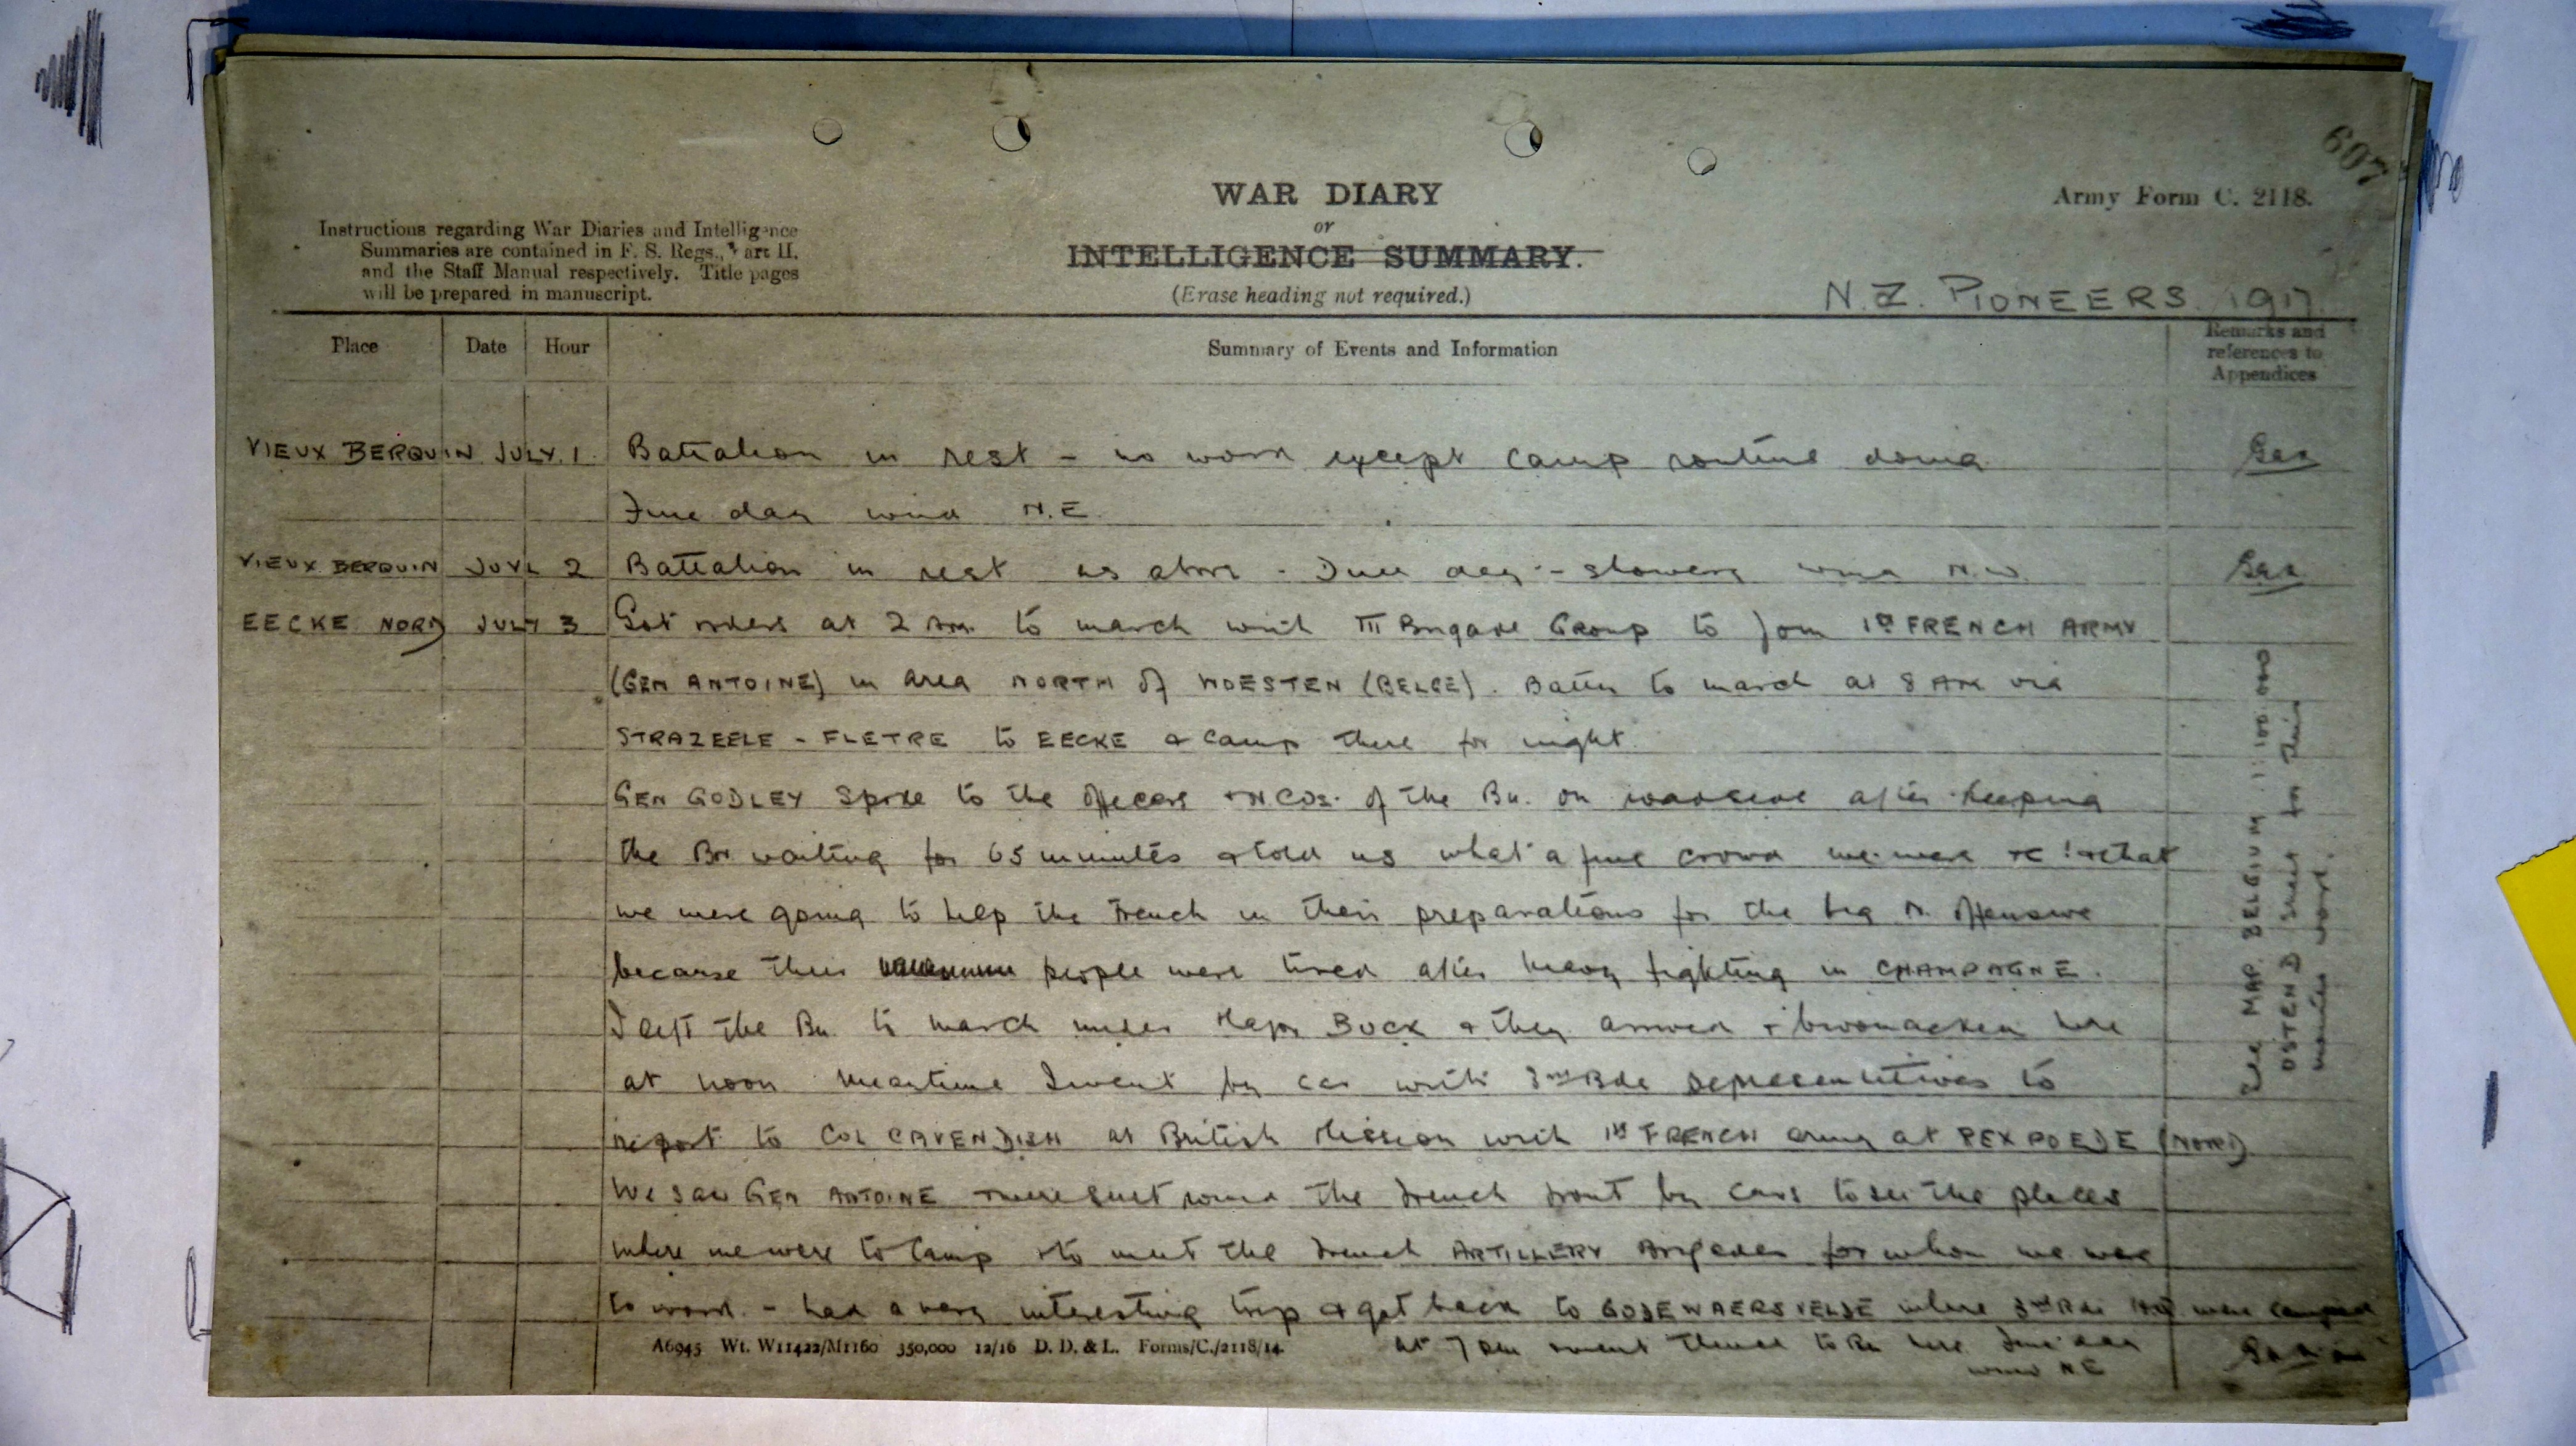 607
WAR DIARY
or
INTELLIGENCE SUMMARY.
(Erase heading not required.)
Army Form C. 2118.
Instructions regarding War Diaries and Intelligence
Summaries are contained in F. S. Regs., Part II.
and the Staff Manual respectively. Title pages
will be prepared in manuscript.
N.Z. PIONEERS. 1917.
Place Date Hour Summary of Events and Information Remarks and references to Appendices
VIEUX BERQUIN JULY. 1 Battalion in rest - no work except camp routine doing
Fine day wind N.E.
VIEUX BERQUIN JUYL 2 Battalion in rest as above - Dull day - showery wind N.W.
EECKE NORD JULY 3 Got orders at 2 AM. to march with III Brigade Group to join 1st FRENCH ARMY
(GEN ANTOINE) in area NORTH of WOESTEN (BELGE). Battn to march at 8 AM via
STRAZEELE - FLETRE to EECKE & camp there for night
GEN GODLEY spoke to the officers & NCOs. of the Bn. on parade after keeping
the Bn waiting for 65 minutes & told us what a fine crowd we were &c! & that
we were going to help the French in their preparations for the big N. offensive
because their people were tired after heavy fighting in CHAMPAGNE.
I left the Bn. to march under Major BUCK & they arrived & bivouacked here
at noon meantime I went by car with 3rd Bde representatives to
report to COL CAVENDISH at British Mission with 1st FRENCH army at REXPOEDE (NORD)
We saw GEN ANTOINE & were sent round the French front by cars to see the places
where we were to camp & to meet the French ARTILLERY Brigades for whom we were
to work. - had a very interesting trip & got back to GODEWAERSVELDE where 3rd Bde HQ were camped
at 7 pm & went thence to Bn here. Fine day
wind NE
See MAP. BELGIUM 1:100.000
OSTEND sheet for this
months work.
A6945 Wt. W11422/M1160 350,000 12/16 D. D. & L. Forms/C./2118/14.